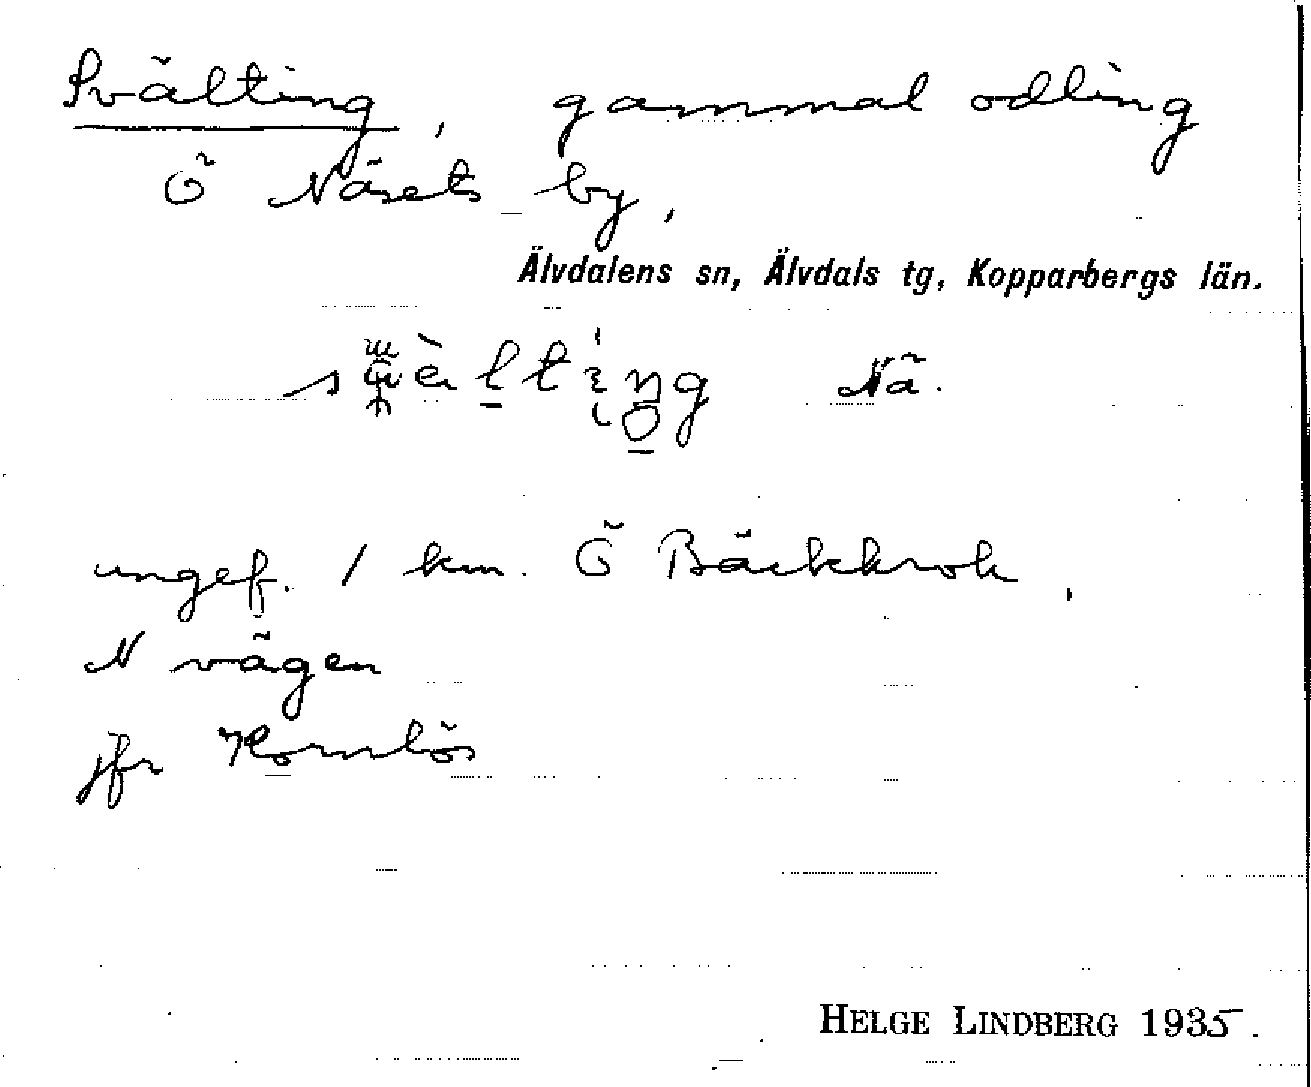 Svälting, gammal odling
Ö Näsets by,
Älvdalens sn, Älvdals tg, Kopparbergs län.
Nä.
ungef. 1 km. Ö Bäckkrok,
N vägen
jfr Kornlös
HELGE LINDBERG 1935.